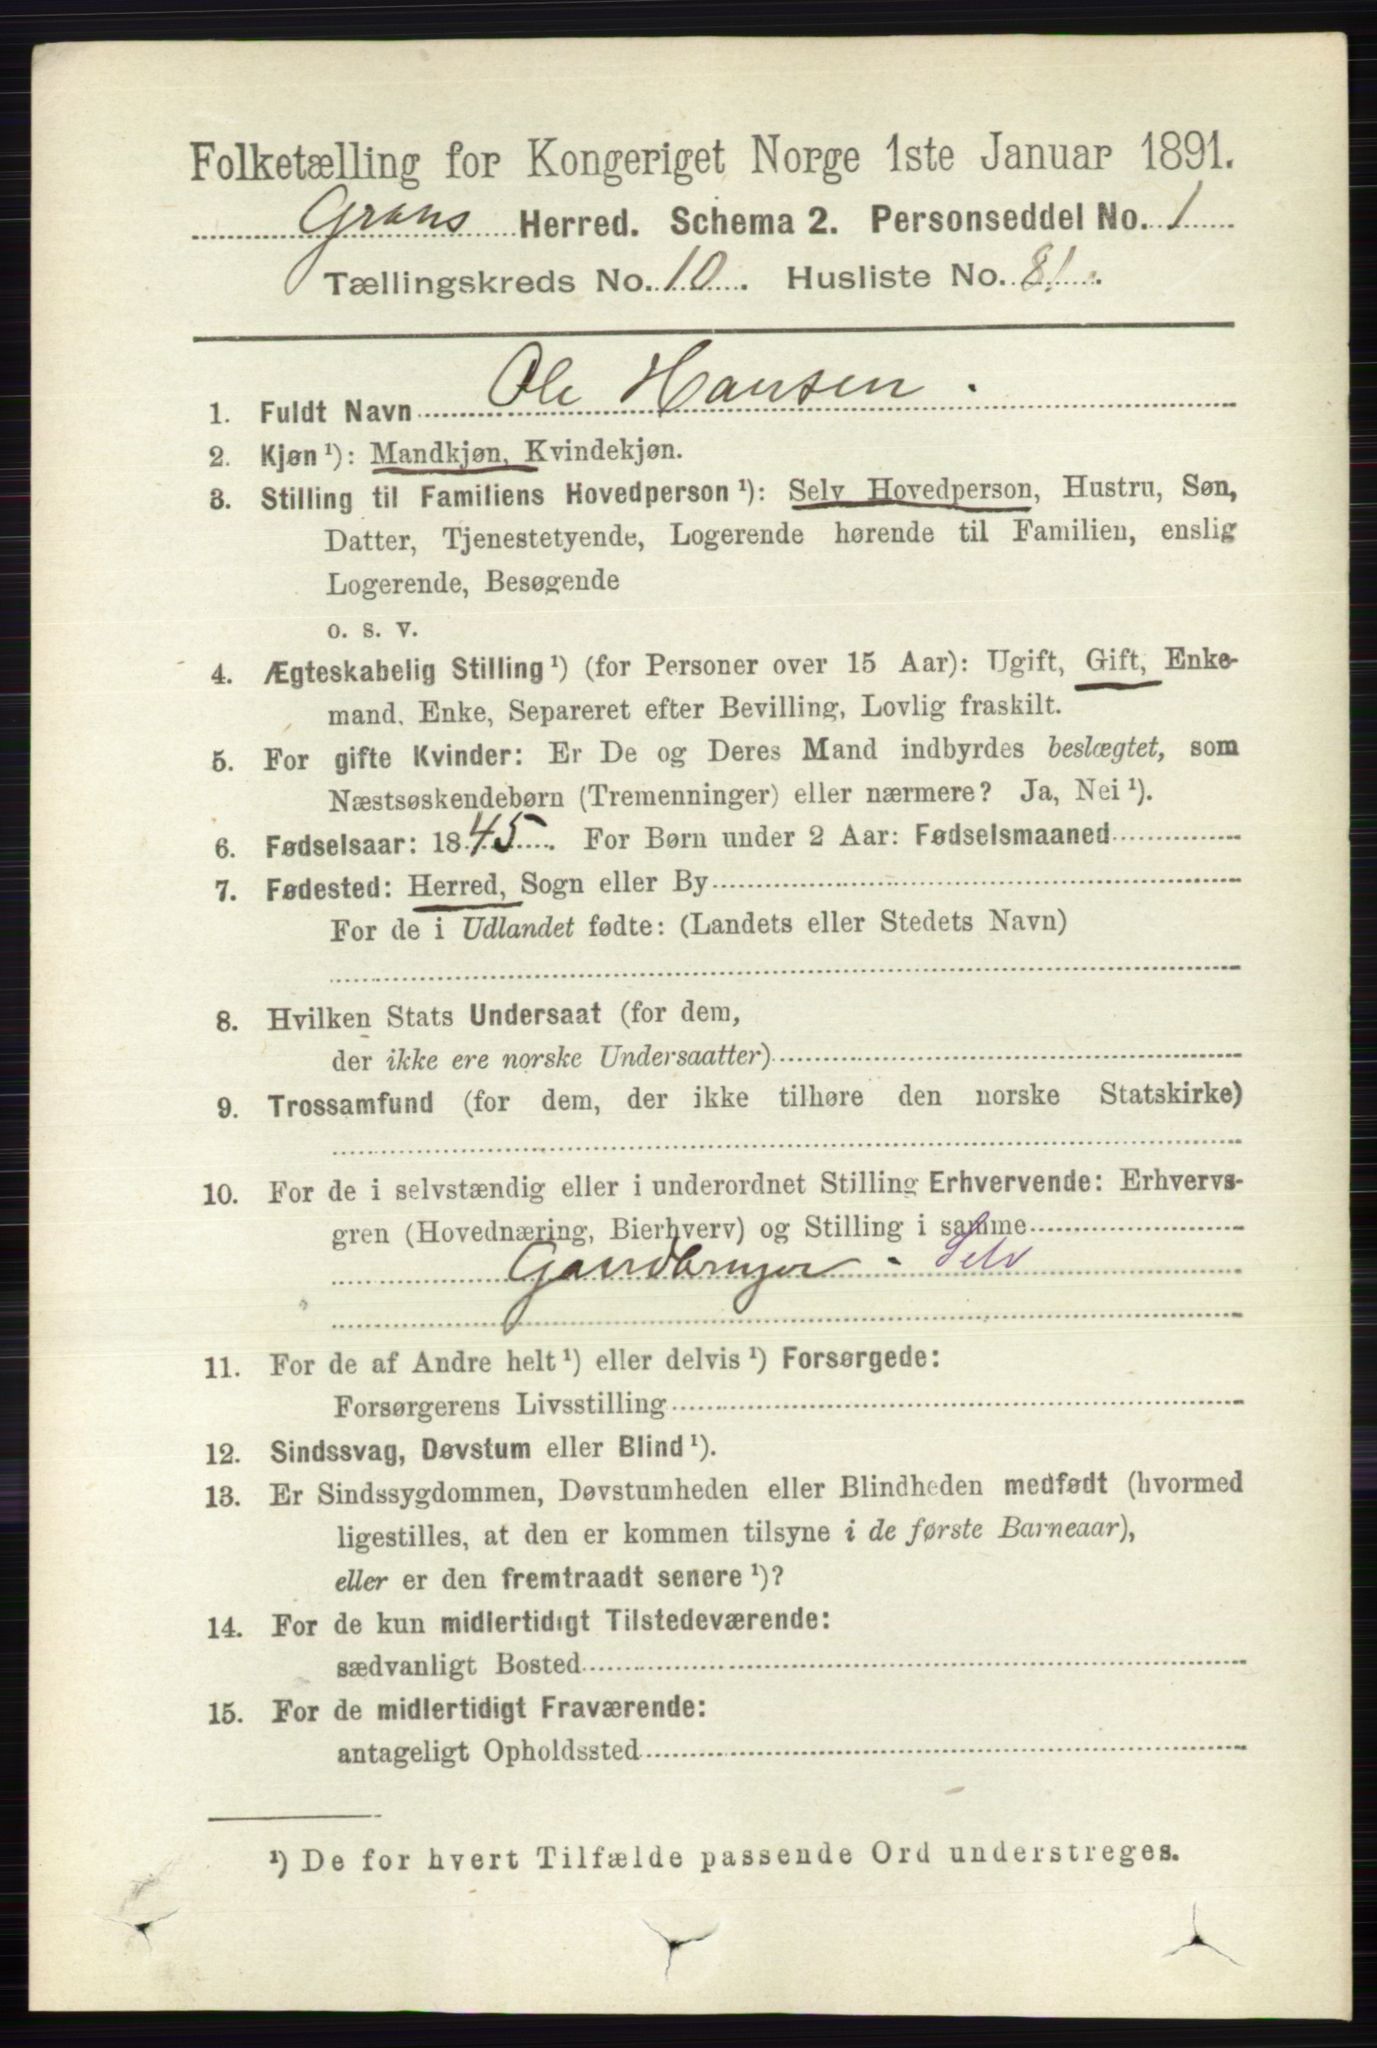 Folketælling for Kongeriget Norge 1ste Januar 1891.
Grans Herred. Schema 2. Personseddel No. 1
Tællingskreds No. 10. Husliste No. 81.
1. Fuldt Navn Ole Hansen.
2. Kjøn¹): Mandkjøn, Kvindekjøn.
3. Stilling til Familiens Hovedperson¹): Selv Hovedperson, Hustru, Søn,
Datter, Tjenestetyende, Logerende hørende til Familien, enslig
Logerende, Besøgende
o. s. v.
4. Ægteskabelig Stilling¹) (for Personer over 15 Aar): Ugift, Gift, Enke-
mand, Enke, Separeret efter Bevilling, Lovlig fraskilt.
5. For gifte Kvinder: Er De og Deres Mand indbyrdes beslægtet, som
Næstsøskendebørn (Tremenninger) eller nærmere? Ja, Nei¹).
6. Fødselsaar: 1845. For Børn under 2 Aar: Fødselsmaaned
7. Fødested: Herred, Sogn eller By
For de i Udlandet fødte: (Landets eller Stedets Navn)
8. Hvilken Stats Undersaat (for dem,
der ikke ere norske Undersaatter)
9. Trossamfund (for dem, der ikke tilhøre den norske Statskirke)
10. For de i selvstændig eller i underordnet Stilling Erhvervende: Erhvervs-
gren (Hovednæring, Bierhverv) og Stilling i samme
Gaardbruger - Selv
11. For de af Andre helt¹) eller delvis¹) Forsørgede:
Forsørgerens Livsstilling
12. Sindssvag, Døvstum eller Blind¹).
13. Er Sindssygdommen, Døvstumheden eller Blindheden medfødt (hvormed
ligestilles, at den er kommen tilsyne i de første Barneaar),
eller er den fremtraadt senere¹)?
14. For de kun midlertidigt Tilstedeværende:
sædvanligt Bosted
15. For de midlertidigt Fraværende:
antageligt Opholdssted
¹) De for hvert Tilfælde passende Ord understreges.